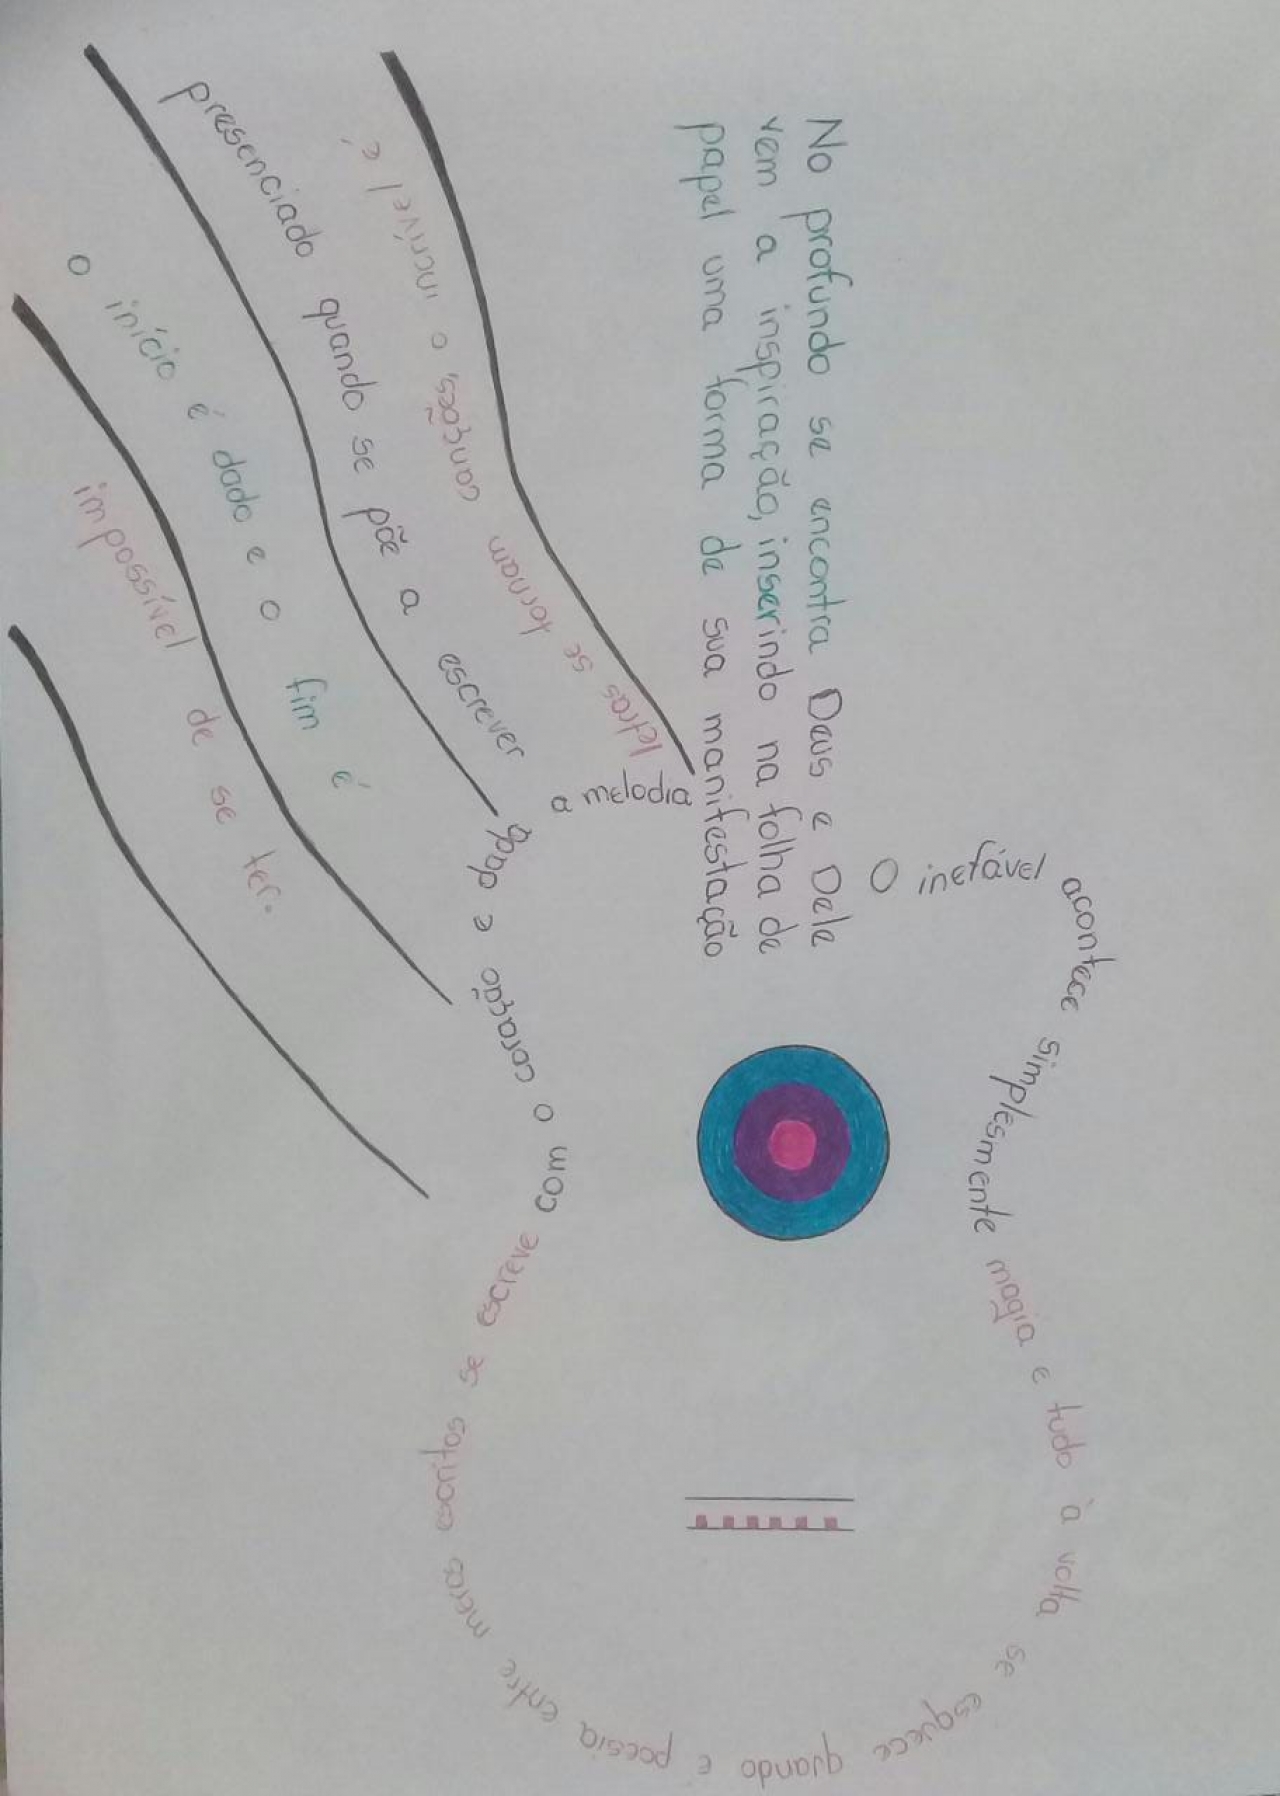 No profundo se encontra Deus e Dele
vem a inspiração, inserindo na folha de
papel uma forma de sua manifestação
O inefável acontece simplesmente magia e tudo à volta se esquece quando e poesia entre meros escritos se escreve com o coração e
a melodia
letras se tornam canções, o incrível é
presenciado quando se põe a escrever
o início é dado e o fim é
impossível de se ter.